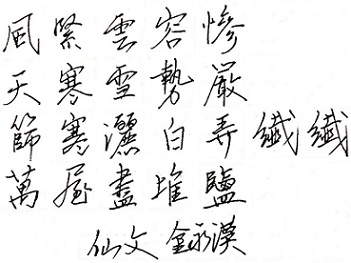 風緊雲容慘
天寒雪勢嚴
篩寒灑白弄纖纖
萬屋盡堆鹽
仙文 金永漠